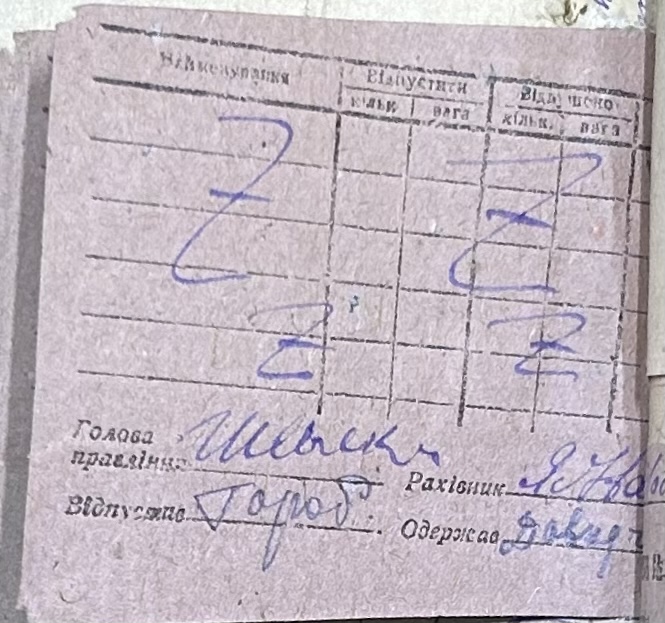 Найменування Відпустити Відпущено
кільк. вага кільк. вага
Z Z
Z Z
Голова
правління Рахівник
Відпустив Город. Одержав